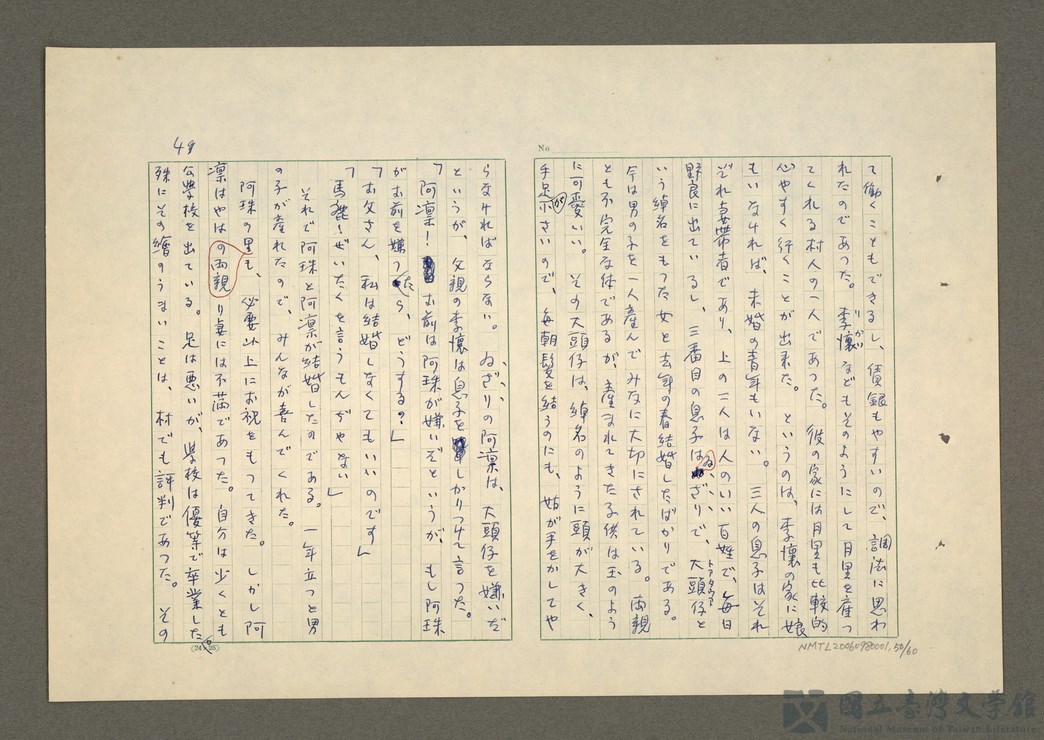 No
て働くこともできるし、賃銀もやすいので、調法に思わ
れたのであった。李懐などもそのようにして月里を雇っ
てくれる村人の一人であった。彼の家には月里も比較的
心やすく行くことが出来た。というのは、李懐の家に娘
もいなければ、未婚の青年もいない。三人の息子はそれ
ぞれ妻帯者であり、上の二人は人のいい百姓で、毎日
野良に出ているし、三番目の息子はゐざりで、大頭仔と
いう綽名をもった女と去年の春結婚したばかりである。
今は男の子を一人産んでみなに大切にされている。両親
とも不完全な体であるが、産まれてきた子供は玉のよう
に可愛いい。その大頭仔は、綽名のように頭が大きく、
手足が小さいので、毎朝髪を結うのにも、姑が手をかしてや
らなければならない。ゐざりの阿凛は、大頭仔を嫌いだ
というが、父親の李懐は息子をしかりつけて言った。
「阿凛!お前は阿珠が嫌いだというが、もし阿珠
がお前を嫌ったら、どうする?」
「お父さん、私は結婚しなくてもいいのです」
「馬鹿!ぜいたくを言うもんぢゃない」
それで阿珠と阿凛が結婚したのである。一年立つと男
の子が産れたので、みんなが喜んでくれた。
阿珠の里の両親も、必要以上にお祝をもってきた。しかし阿
凛はやはり妻には不満であった。自分は少くとも
公学校を出ている。足は悪いが、学校は優等で卒業した。
殊にその繪のうまいことは、村でも評判であった。その
49
NMTL20060980001.50/60
國立臺灣文学館
National Museum of Taiwan Literature